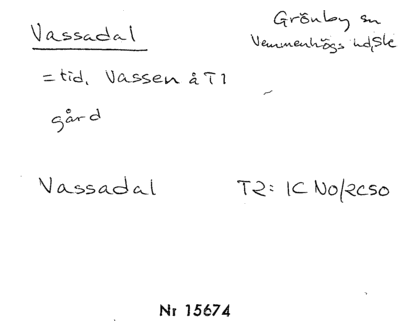 Vassadal
Grönby sn
Vemmenhögs hd, Sk
= tid. Vassen å T1
gård
Vassadal
T2: 1C NO/2CSO
Nr 15674